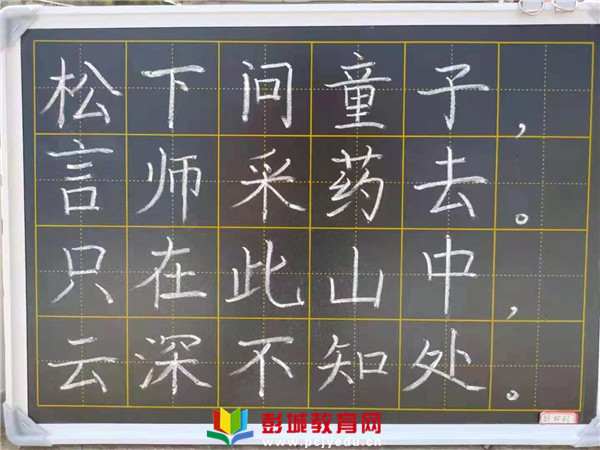 松下问童子，
言师采药去。
只在此山中，
云深不知处。
彭城教育网
www.pcjyedu.cn